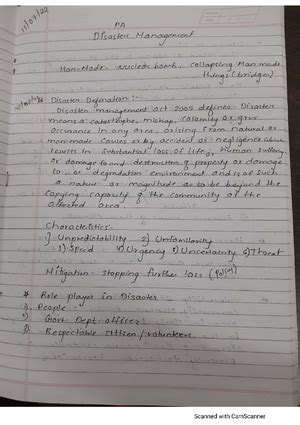 11/07/22
PA
Disaster Management
Man-Made - Nuclear bomb, collapsing Man made
things (bridges)
Disaster Defination :-
Disaster management Act 2005 defines Disaster
means a catastrophe, mishap, calamity or grave
occurance in any area, arising from natural or
man made causes or by accident or negligence which
results in substantial loss of life, or human suffering
or damage to and destruction of property or damage
to or degradation environment and is of such
a nature or magnitude as to be beyond the
copying capacity of the community of the
affected area.
Characteristics:-
1) Unpredictability 2) Unfamilarity
3) Speed 4) Urgency 5) Uncertainty 6) Threat
Mitigation - stopping further loss (Policy)
* Role player in Disaster
1) People
2) Govt. Dept. officer
3) Respectable citizen / volunteers.
Scanned with CamScanner